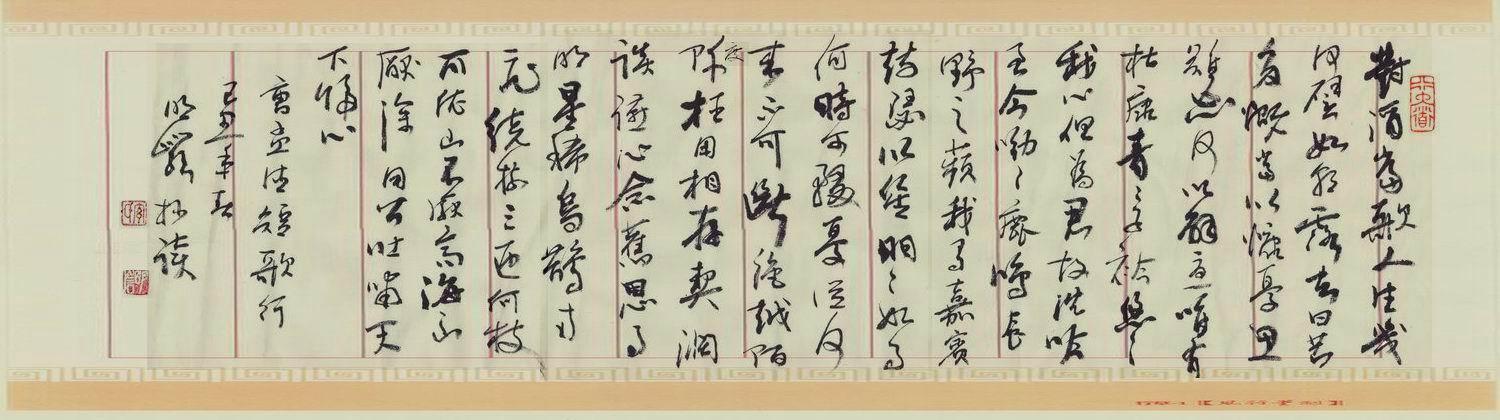 對酒當歌人生幾
何譬如朝露去日苦
多慨當以慷憂思
難忘何以解憂唯有
杜康青々子衿悠々
我心但為君故沈吟
至今呦々鹿鳴食
野之蘋我有嘉賓
鼓瑟吹笙明々如月
何時可掇憂從何
來不可斷絕越陌
度阡枉用相存契闊
談讌心念舊恩月
明星稀烏鵲南
飛繞樹三匝何枝
可依山不厭高海不
厭深周公吐哺天
下歸心
曹孟德短歌行
己丑年春